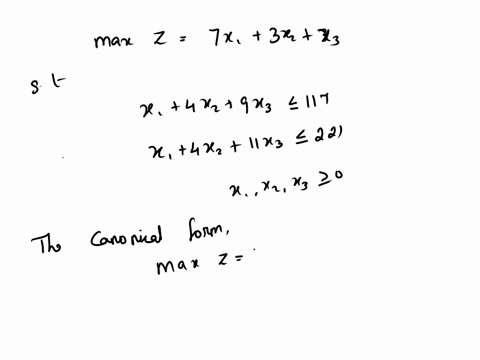 max Z = 7x₁ + 3x₂ + x₃
s.t
x₁ + 4x₂ + 9x₃ ≤ 117
x₁ + 4x₂ + 11x₃ ≤ 221
x₁, x₂, x₃ ≥ 0
The Canonical form,
max Z =